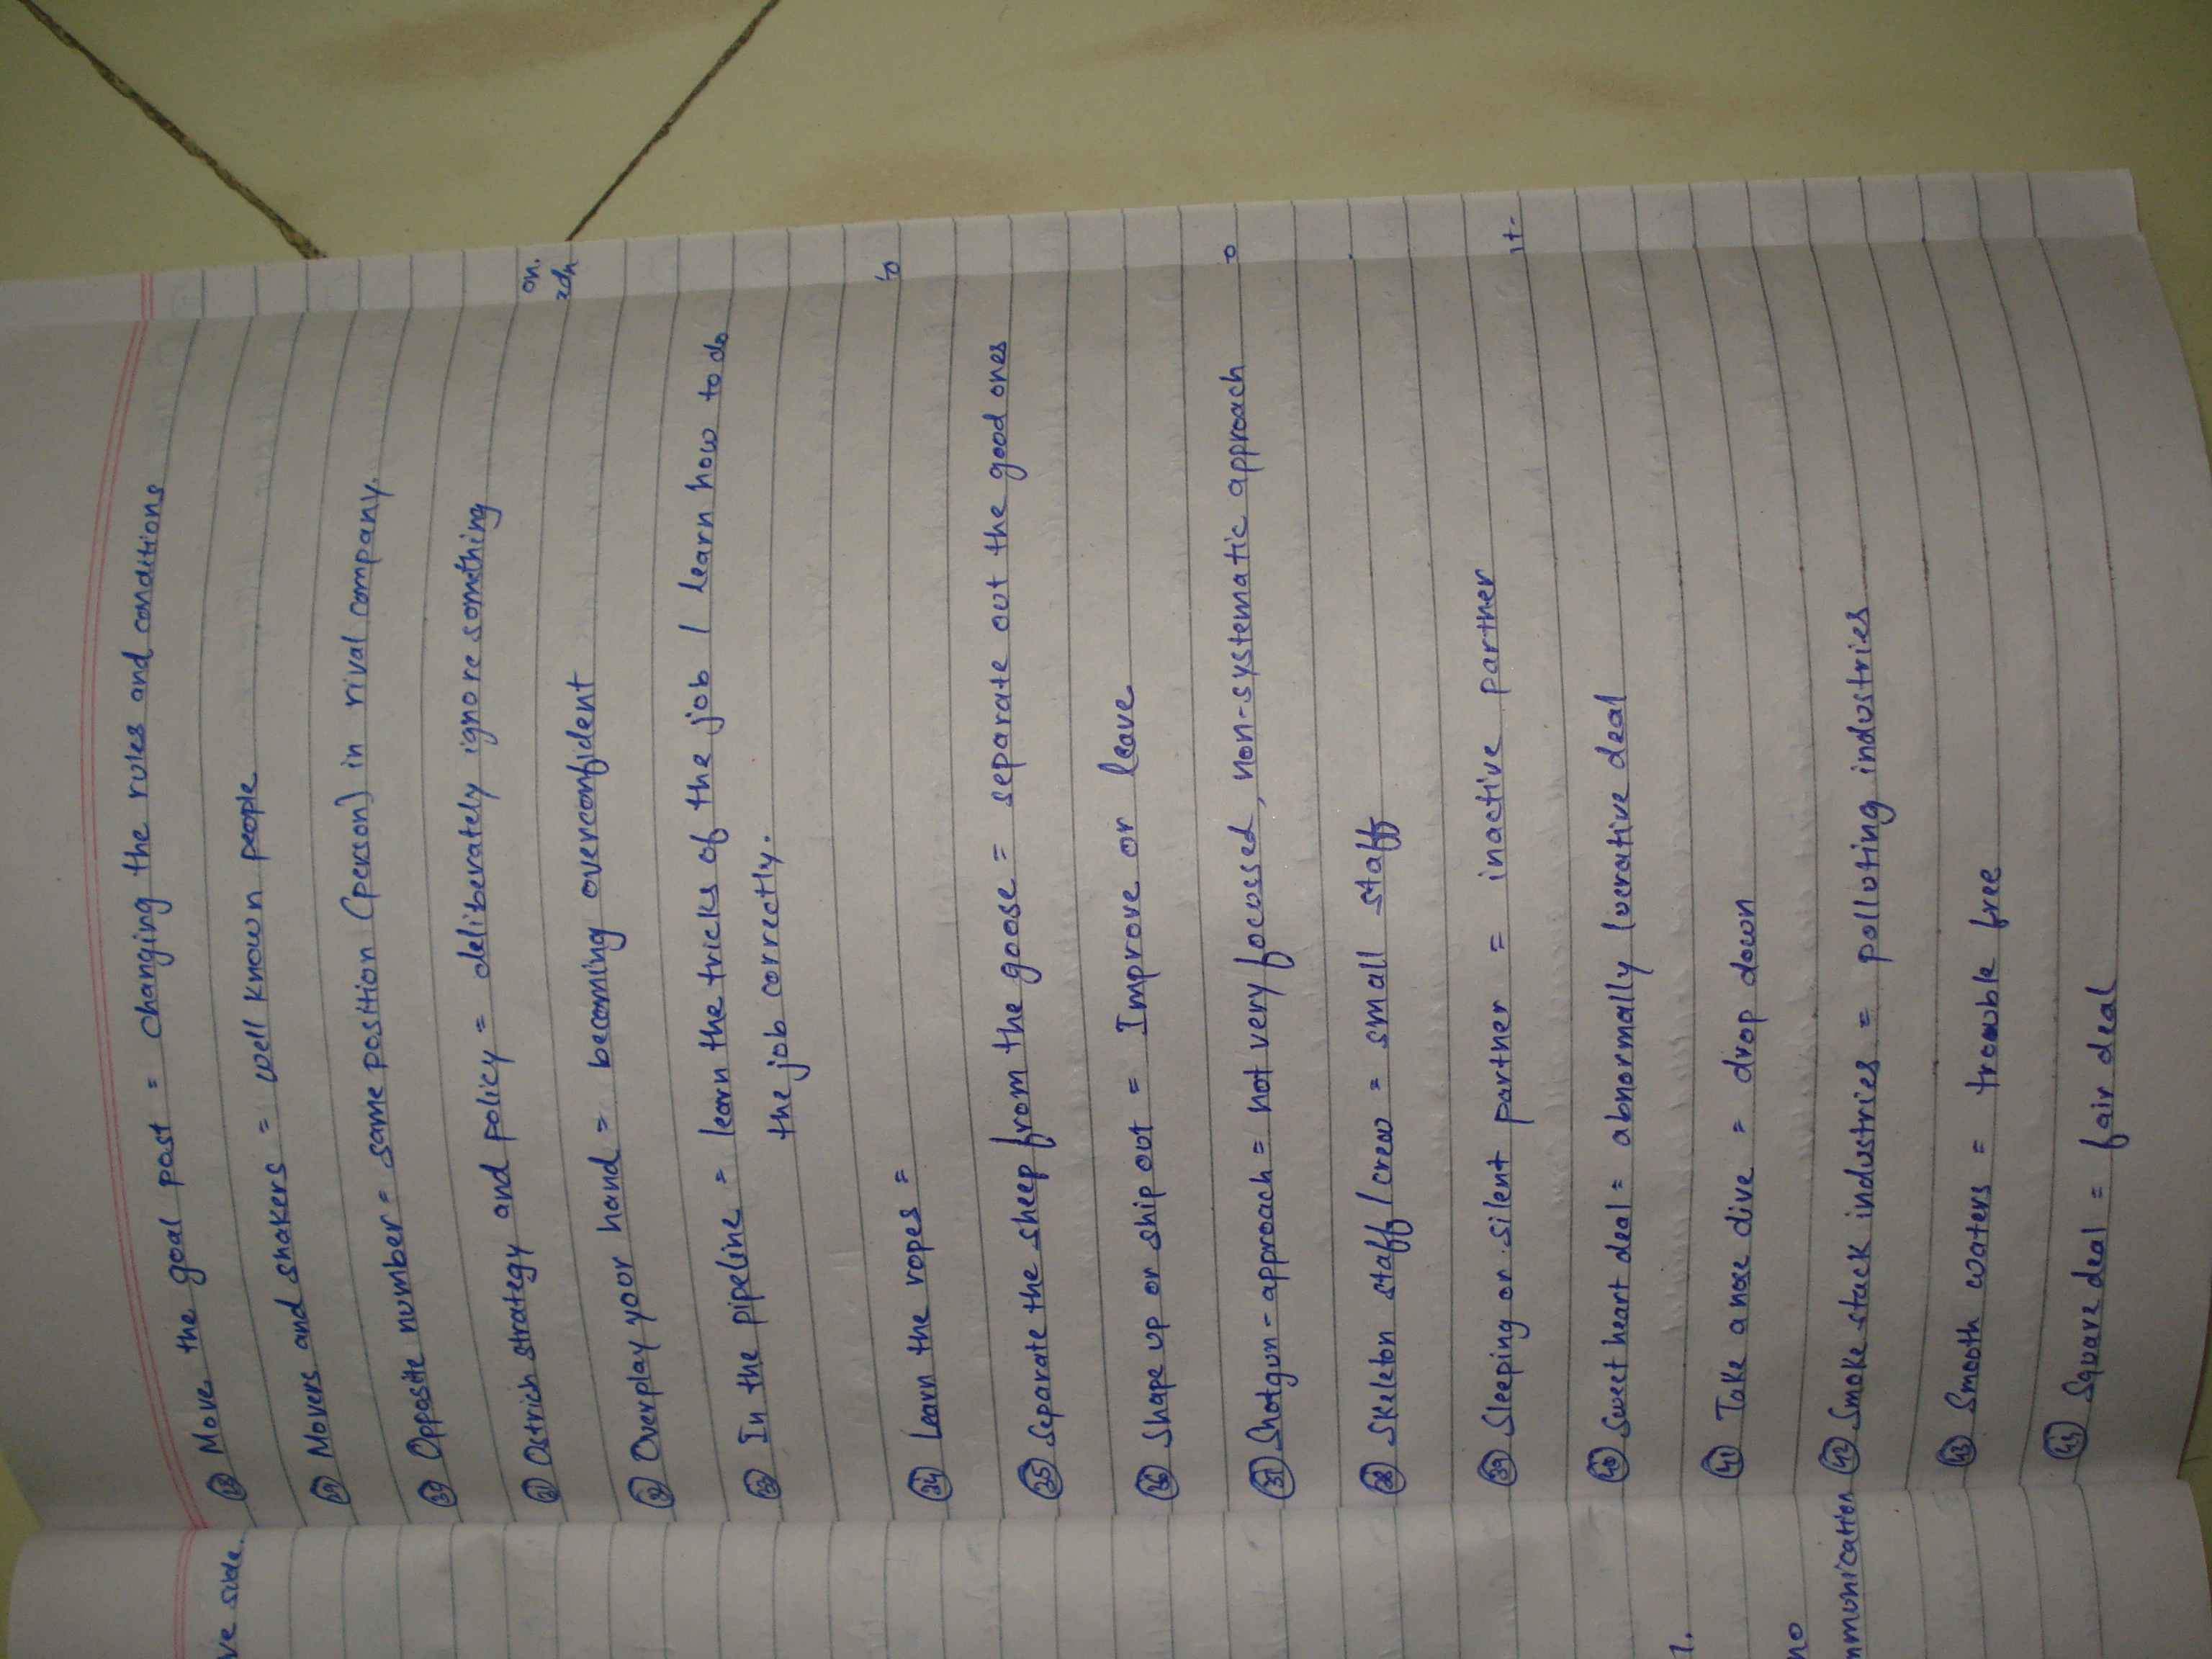 Move the goal post = changing the rules and conditions
Movers and shakers = well known people
Opposite number = same position (person) in rival company.
Ostrich strategy and policy = deliberately ignore something
Overplay your hand = becoming overconfident
In the pipeline = learn the tricks of the job / learn how to do
the job correctly.
34 Learn the ropes =
35 Separate the sheep from the goose = separate out the good ones
36 Shape up or ship out = Improve or leave
37 Shotgun-approach = not very focussed, non-systematic approach
38 Skeleton staff/crew = small staff
39 Sleeping or silent partner = inactive partner
40 Sweet heart deal = abnormally lucrative deal
41 Take a nose dive = drop down
42 Smoke stack industries = polluting industries
43 Smooth waters = trouble free
Square deal = fair deal
ve side.
1.
no
mmunication